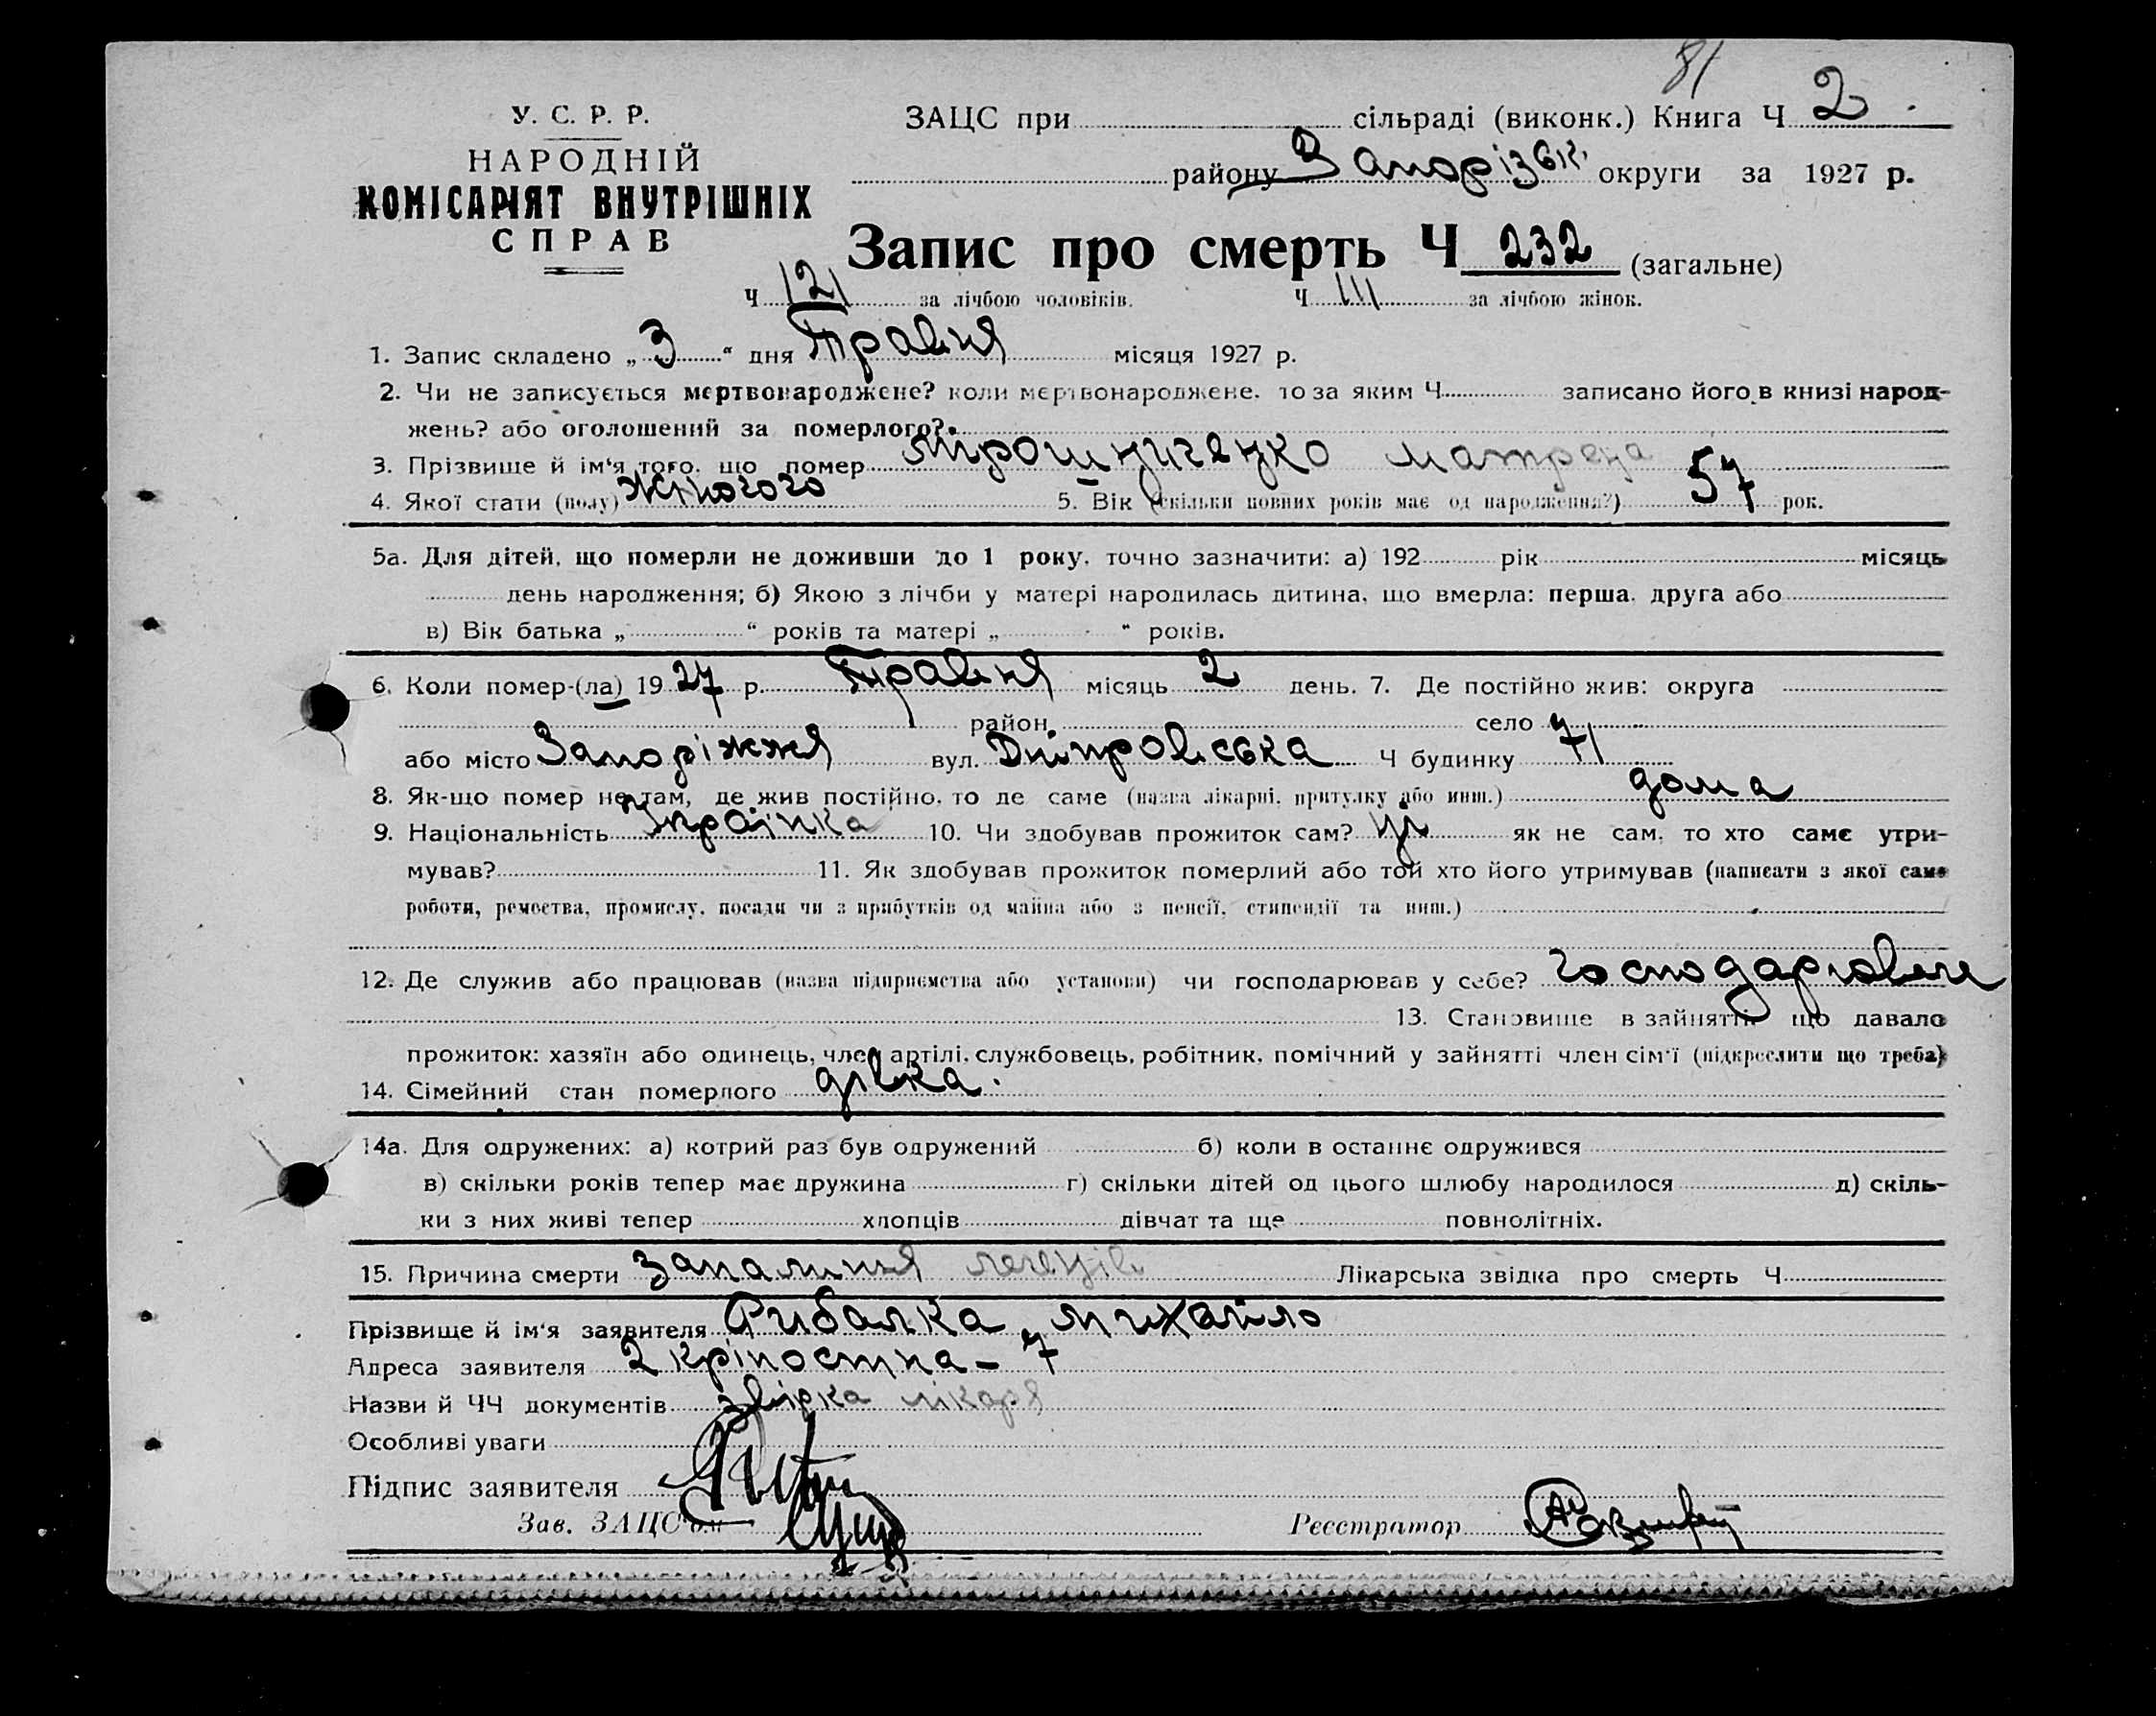 81
У. С. Р. Р.
НАРОДНІЙ
КОМІСАРІЯТ ВНУТРІШНІХ
СПРАВ
ЗАЦС при сільраді (виконк.) Книга Ч 2
району Запорізьк. округи за 1927 р.
Запис про смерть Ч 232 (загальне)
Ч 121 за лічбою чоловіків. Ч 111 за лічбою жінок.
1. Запис складено „ 3 “ дня Травня місяця 1927 р.
2. Чи не записується мертвонароджене? коли мертвонароджене, то за яким Ч записано його в книзі народ-
жень? або оголошений за померлого?
3. Прізвище й ім'я того, що помер Мирошниченко Матрена
4. Якої стати (полу) Жіночого 5. Вік (скільки повних років має од народження?) 57 рок.
5а. Для дітей, що померли не доживши до 1 року, точно зазначити: а) 192 рік місяць
день народження; б) Якою з лічби у матері народилась дитина, що вмерла: перша, друга або
в) Вік батька „ “ років та матері „ “ років.
6. Коли помер-(ла) 1927 р. Травня місяць 2 день. 7. Де постійно жив: округа
район село
або місто Запоріжжя вул. Дніпровська Ч будинку 71
8. Як-що помер не там, де жив постійно, то де саме (назва лікарні, притулку або инш.) дома
9. Національність Українка 10. Чи здобував прожиток сам? ні як не сам, то хто саме утри-
мував? 11. Як здобував прожиток померлий або той хто його утримував (написати з якої саме
роботи, ремества, промислу, посади чи з прибутків од майна або з пенсії, стипендії та инш.)
12. Де служив або працював (назва підприємства або установи) чи господарював у себе?
13. Становище в зайнятті що давало
прожиток: хазяїн або одинець, член артілі, службовець, робітник, помічний у зайнятті член сім'ї (підкреслити що треба)
14. Сімейний стан померлого дівка.
14а. Для одружених: а) котрий раз був одружений б) коли в останнє одружився
в) скільки років тепер має дружина г) скільки дітей од цього шлюбу народилося д) скіль-
ки з них живі тепер хлопців дівчат та ще повнолітніх.
15. Причина смерти Запалення легенів Лікарська звідка про смерть Ч
Прізвище й ім'я заявителя Рибалка Михайло
Адреса заявителя 2 Кріпостна – 7
Назви й ЧЧ документів звірка лікаря
Особливі уваги
Підпис заявителя
Зав. ЗАЦС'ом Реєстратор